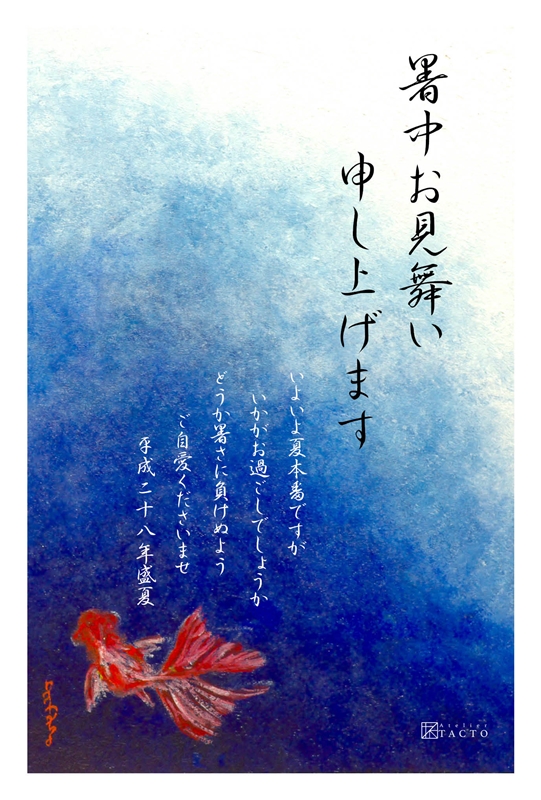 暑中お見舞い
申し上げます
いよいよ夏本番ですが
いかがお過ごしでしょうか
どうか暑さに負けぬよう
ご自愛くださいませ
平成二十八年盛夏
Atelier
TACTO